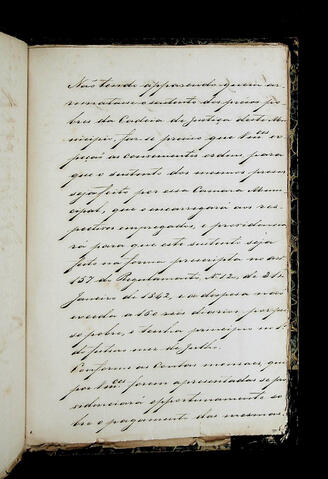 Não tendo apparecido quem ar-
rematasse o sustento dos presos po-
bres da Cadeia de Justiça deste Mu-
nicipio, faz-se preciso que Vmces ex-
peçaõ as convenientes ordens para
que o sustento dos mesmos presos
seja feito por essa Camara Muni-
cipal, que o encarregará aos res-
pectivos empregados, e providencia-
rá para que este sustento seja
feito na forma prescripta no art.
157 do Regulamento Nº 12, de 31 de
Janeiro de 1842, e a despesa não
exceda a 150 reis diarios por pre-
so pobre, e tenha principio no 1º
do futuro mez de Julho.
Conforme as Contas mensaes, que
por Vmces forem apresentadas se pro-
videnciará opportunamente so-
bre o pagamento das mesmas.